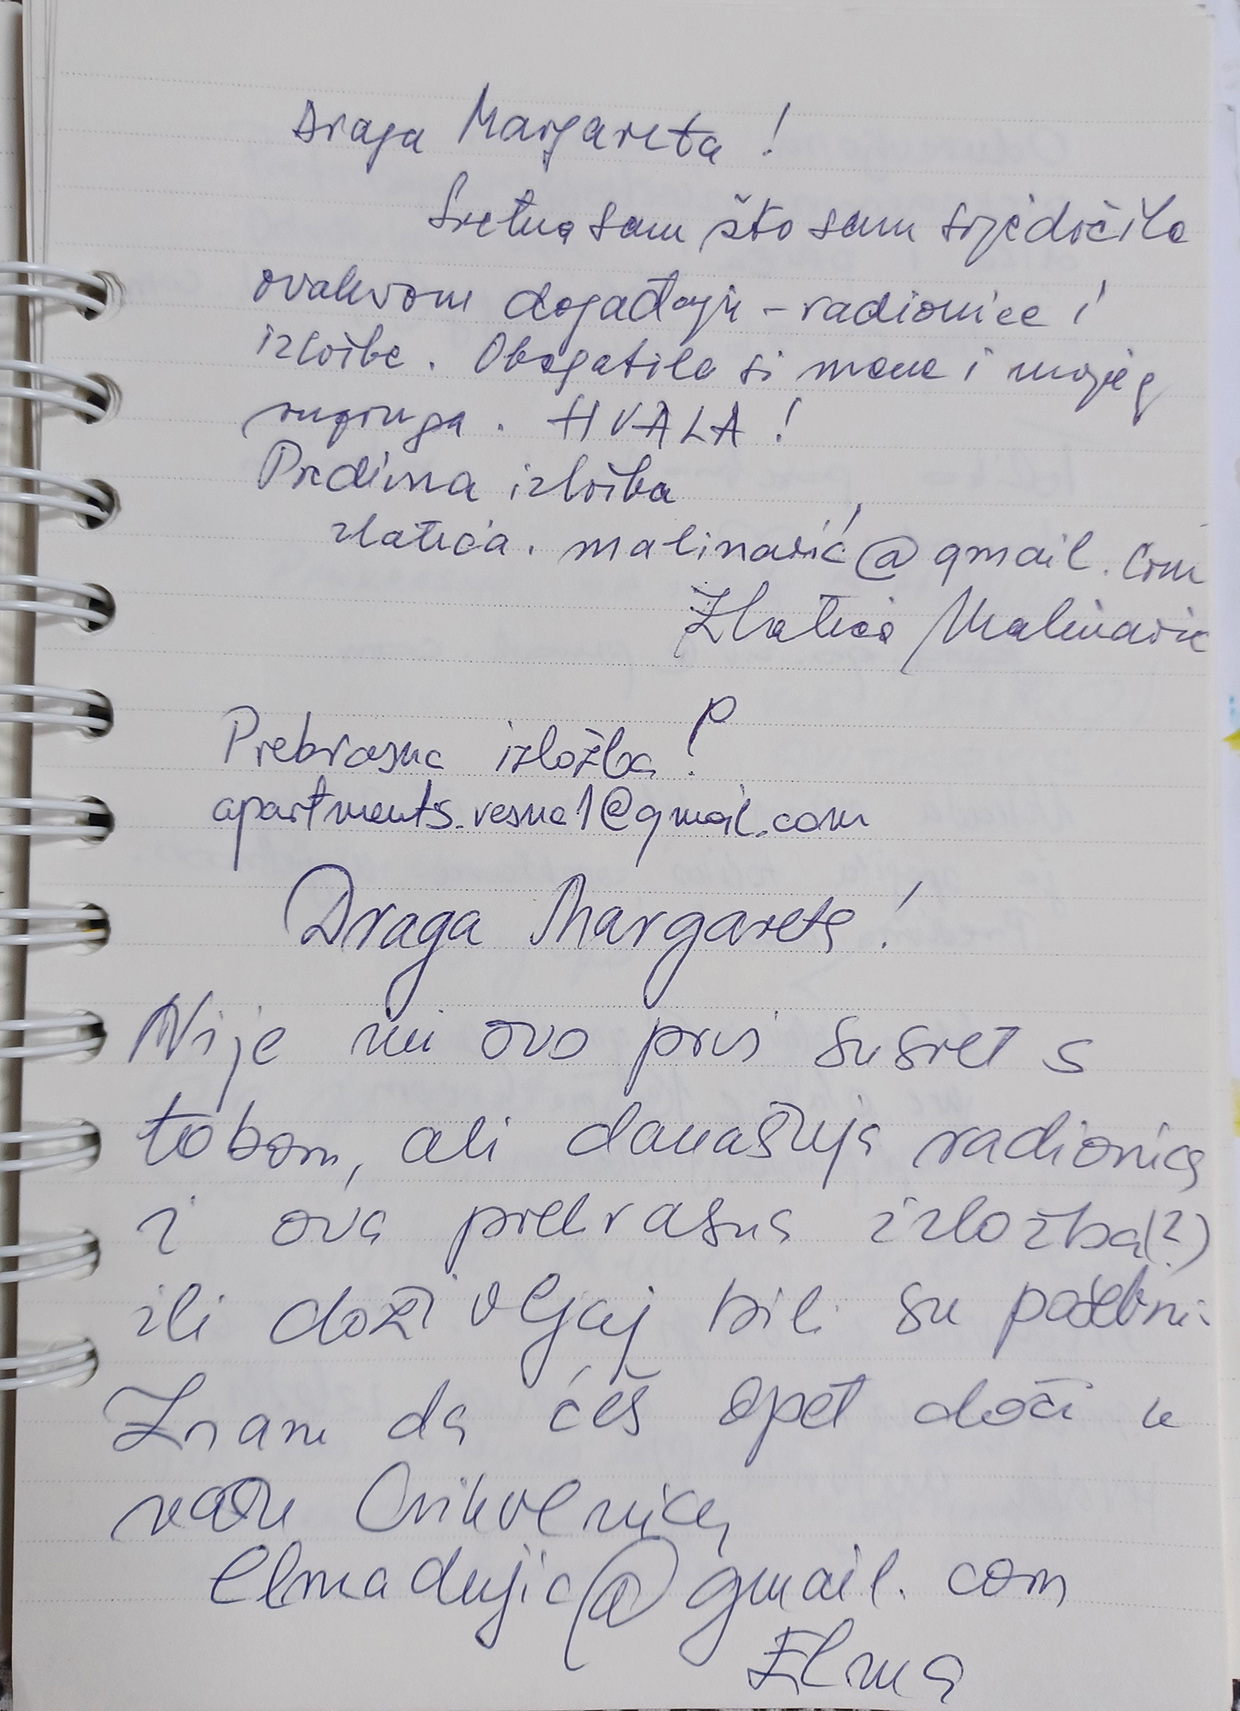 Draga Margareta!
Sretna sam što sam svjedočila
ovakvom događaju - radionice i
izložbe. Obogatila si mene i mojeg
supruga. HVALA!
Predivna izložba
zlatica.malinarić@gmail.com
Zlatica Malinarić
Prekrasna izložba!
apartments.vesna1@gmail.com
Draga Margareta!
Nije mi ovo prvi susret s
tobom, ali današnja radionica
i ova prekrasna izložba(?)
ili doživljaj bili su posebni.
Znam da ćeš opet doći u
našu Crikvenicu
elmadujic@gmail.com
Elma